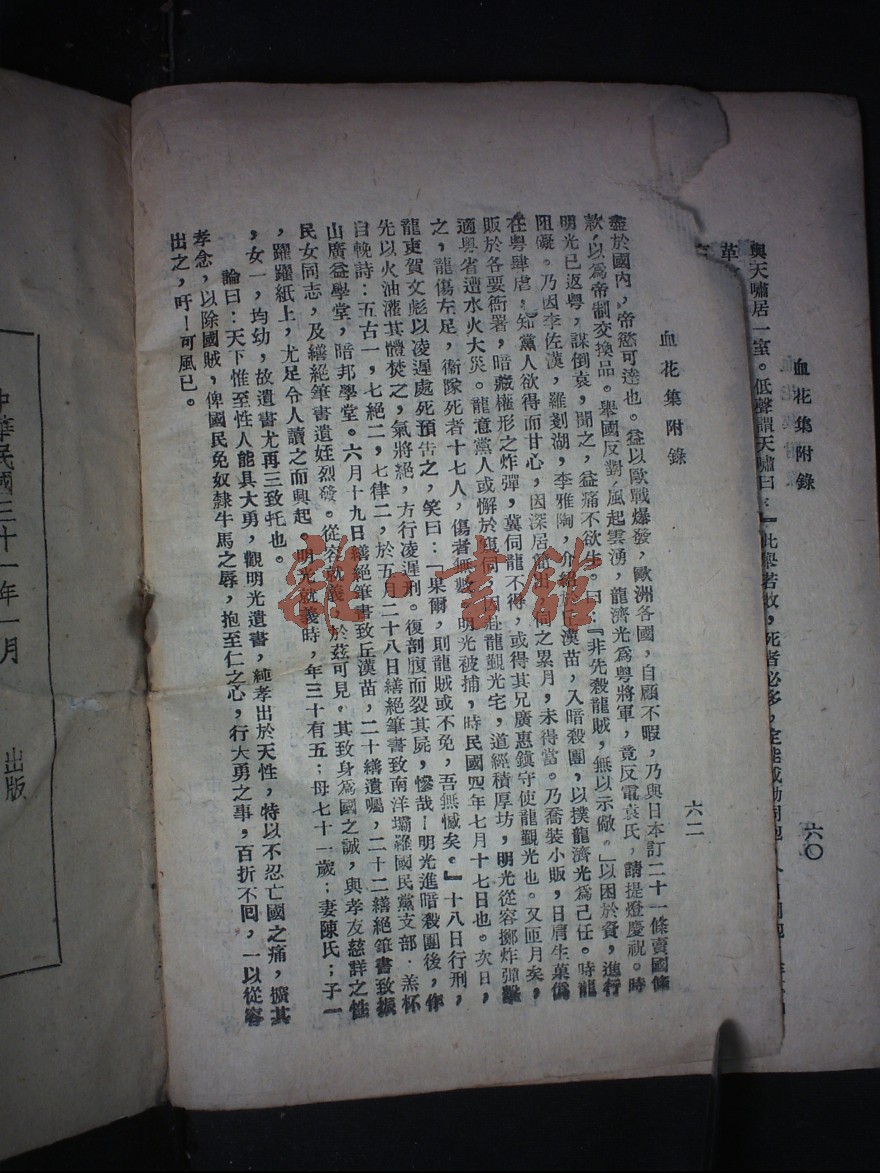 血花集附錄
六〇
與天嘯居一室。低聲謂天嘯曰:『此舉若敗,死者必多,定能感動同胞
革
血花集附錄
六二
盡於國內,帝慾可達也。益以歐戰爆發,歐洲各國,自顧不暇,乃與日本訂二十一條賣國條
款,以爲帝制交換品。舉國反對,風起雲湧,龍濟光爲粵將軍,竟反電袁氏,請提燈慶祝。時
明光已返粵,謀倒袁,聞之,益痛不欲生。曰:『非先殺龍賊,無以示儆。」以困於資,進行
阻礙。乃因李佐漢,羅剗湖,李雅陶,介紹於丘漢苗,入暗殺團,以撲龍濟光爲己任。時龍
在粵肆虐,知黨人欲得而甘心,因深居簡出,伺之累月,未得當。乃喬裝小販,日肩生菓僞
販於各要衝署,暗藏權形之炸彈,冀伺龍不得,或得其兄廣惠鎮守使龍觀光也。又匝月矣,
適粵省遭水火大災。龍意黨人或懈於窺伺,因赴龍觀光宅,道經積厚坊,明光從容擲炸彈擊
之,龍傷左足,衞隊死者十七人,傷者無數,明光被捕,時民國四年七月十七日也。次日,
龍吏賀文彪以凌遲處死預告之,笑曰:『果爾,則龍賊或不免,吾無憾矣。』十八日行刑,
先以火油灌其體焚之,氣將絕,方行凌遲刑。復剖腹而裂其屍,慘哉!明光進暗殺團後,作
自輓詩:五古一,七絕二,七律二,於五月二十八日繕絕筆書致南洋壩羅國民黨支部·羔杯
山廣益學堂,暗邦學堂。六月十九日繕絕筆書致丘漢苗,二十繕遺囑,二十二繕絕筆書致振
民女同志,及繕絕筆書遺姪烈發。從容就義,於茲可見。其致身爲國之誠,與孝友慈詳之性
,躍躍紙上,尤足令人讀之而興起,明光就義時,年三十有五;母七十一歲;妻陳氏;子一
,女一,均幼,故遺書尤再三致牦也。
論曰:天下惟至性人能具大勇,觀明光遺書,純孝出於天性,特以不忍亡國之痛,擴其
孝念,以除國賊,俾國民免奴隸牛馬之辱,抱至仁之心,行大勇之事,百折不囘,一以從容
出之,吁!可風已。
中華民國三十一年一月
出版
雜·書館